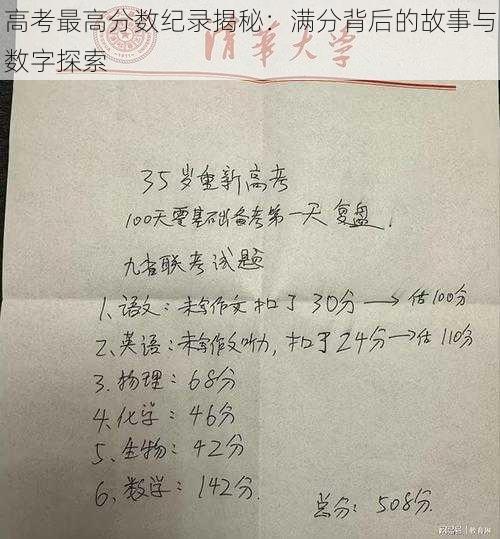 高考最高分数纪录揭秘：满分背后的故事与
数字探索
清华大学
35岁重新高考
100天零基础备考第一天复盘,
九省联考试题
1、语文：未写作文扣了30分→估100分
2、英语：未写作文听力，扣了24分→估110分
3、物理：68分
4、化学：46分
5、生物：42分
6、数学：142分.
总分：508分.
教育网